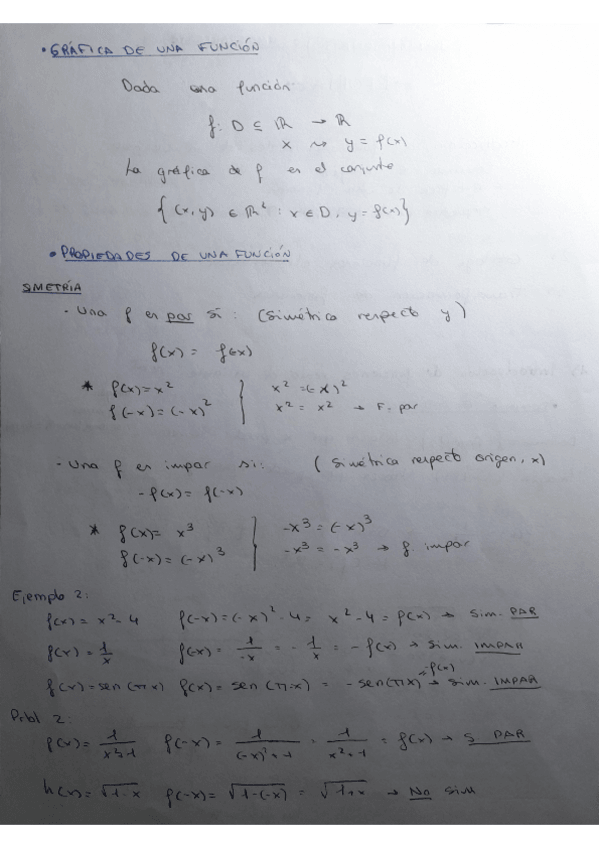 • GRÁFICA DE UNA FUNCIÓN
Dada una función
f: D ⊆ ℝ → ℝ
x ⇝ y = f(x)
La gráfica de f es el conjunto
{ (x,y) ∈ ℝ² : x ∈ D, y = f(x) }
• PROPIEDADES DE UNA FUNCIÓN
SIMETRÍA
· Una f es par si : (Simétrica respecto y)
f(x) = f(-x)
* f(x) = x² } x² = (-x)²
f(-x) = (-x)² x² = x² → F. par
· Una f es impar si: ( Simétrica respecto origen, x)
-f(x) = f(-x)
* f(x) = x³ } -x³ = (-x)³
f(-x) = (-x)³ -x³ = -x³ → f impar
Ejemplo 2:
f(x) = x² - 4 f(-x) = (-x)² - 4 = x² - 4 = f(x) → Sim. PAR
f(x) = 1/x f(-x) = 1/-x = - 1/x = - f(x) → Sim. IMPAR
f(x) = sen (πx) f(x) = sen (π·x) = - sen(πx) = -f(x) → Sim. IMPAR
Pobl 2:
f(x) = 1/x²+1 f(-x) = 1/(-x)²+1 = 1/x²+1 = f(x) → S PAR
h(x) = √1-x f(-x) = √1-(-x) = √1+x → No sim